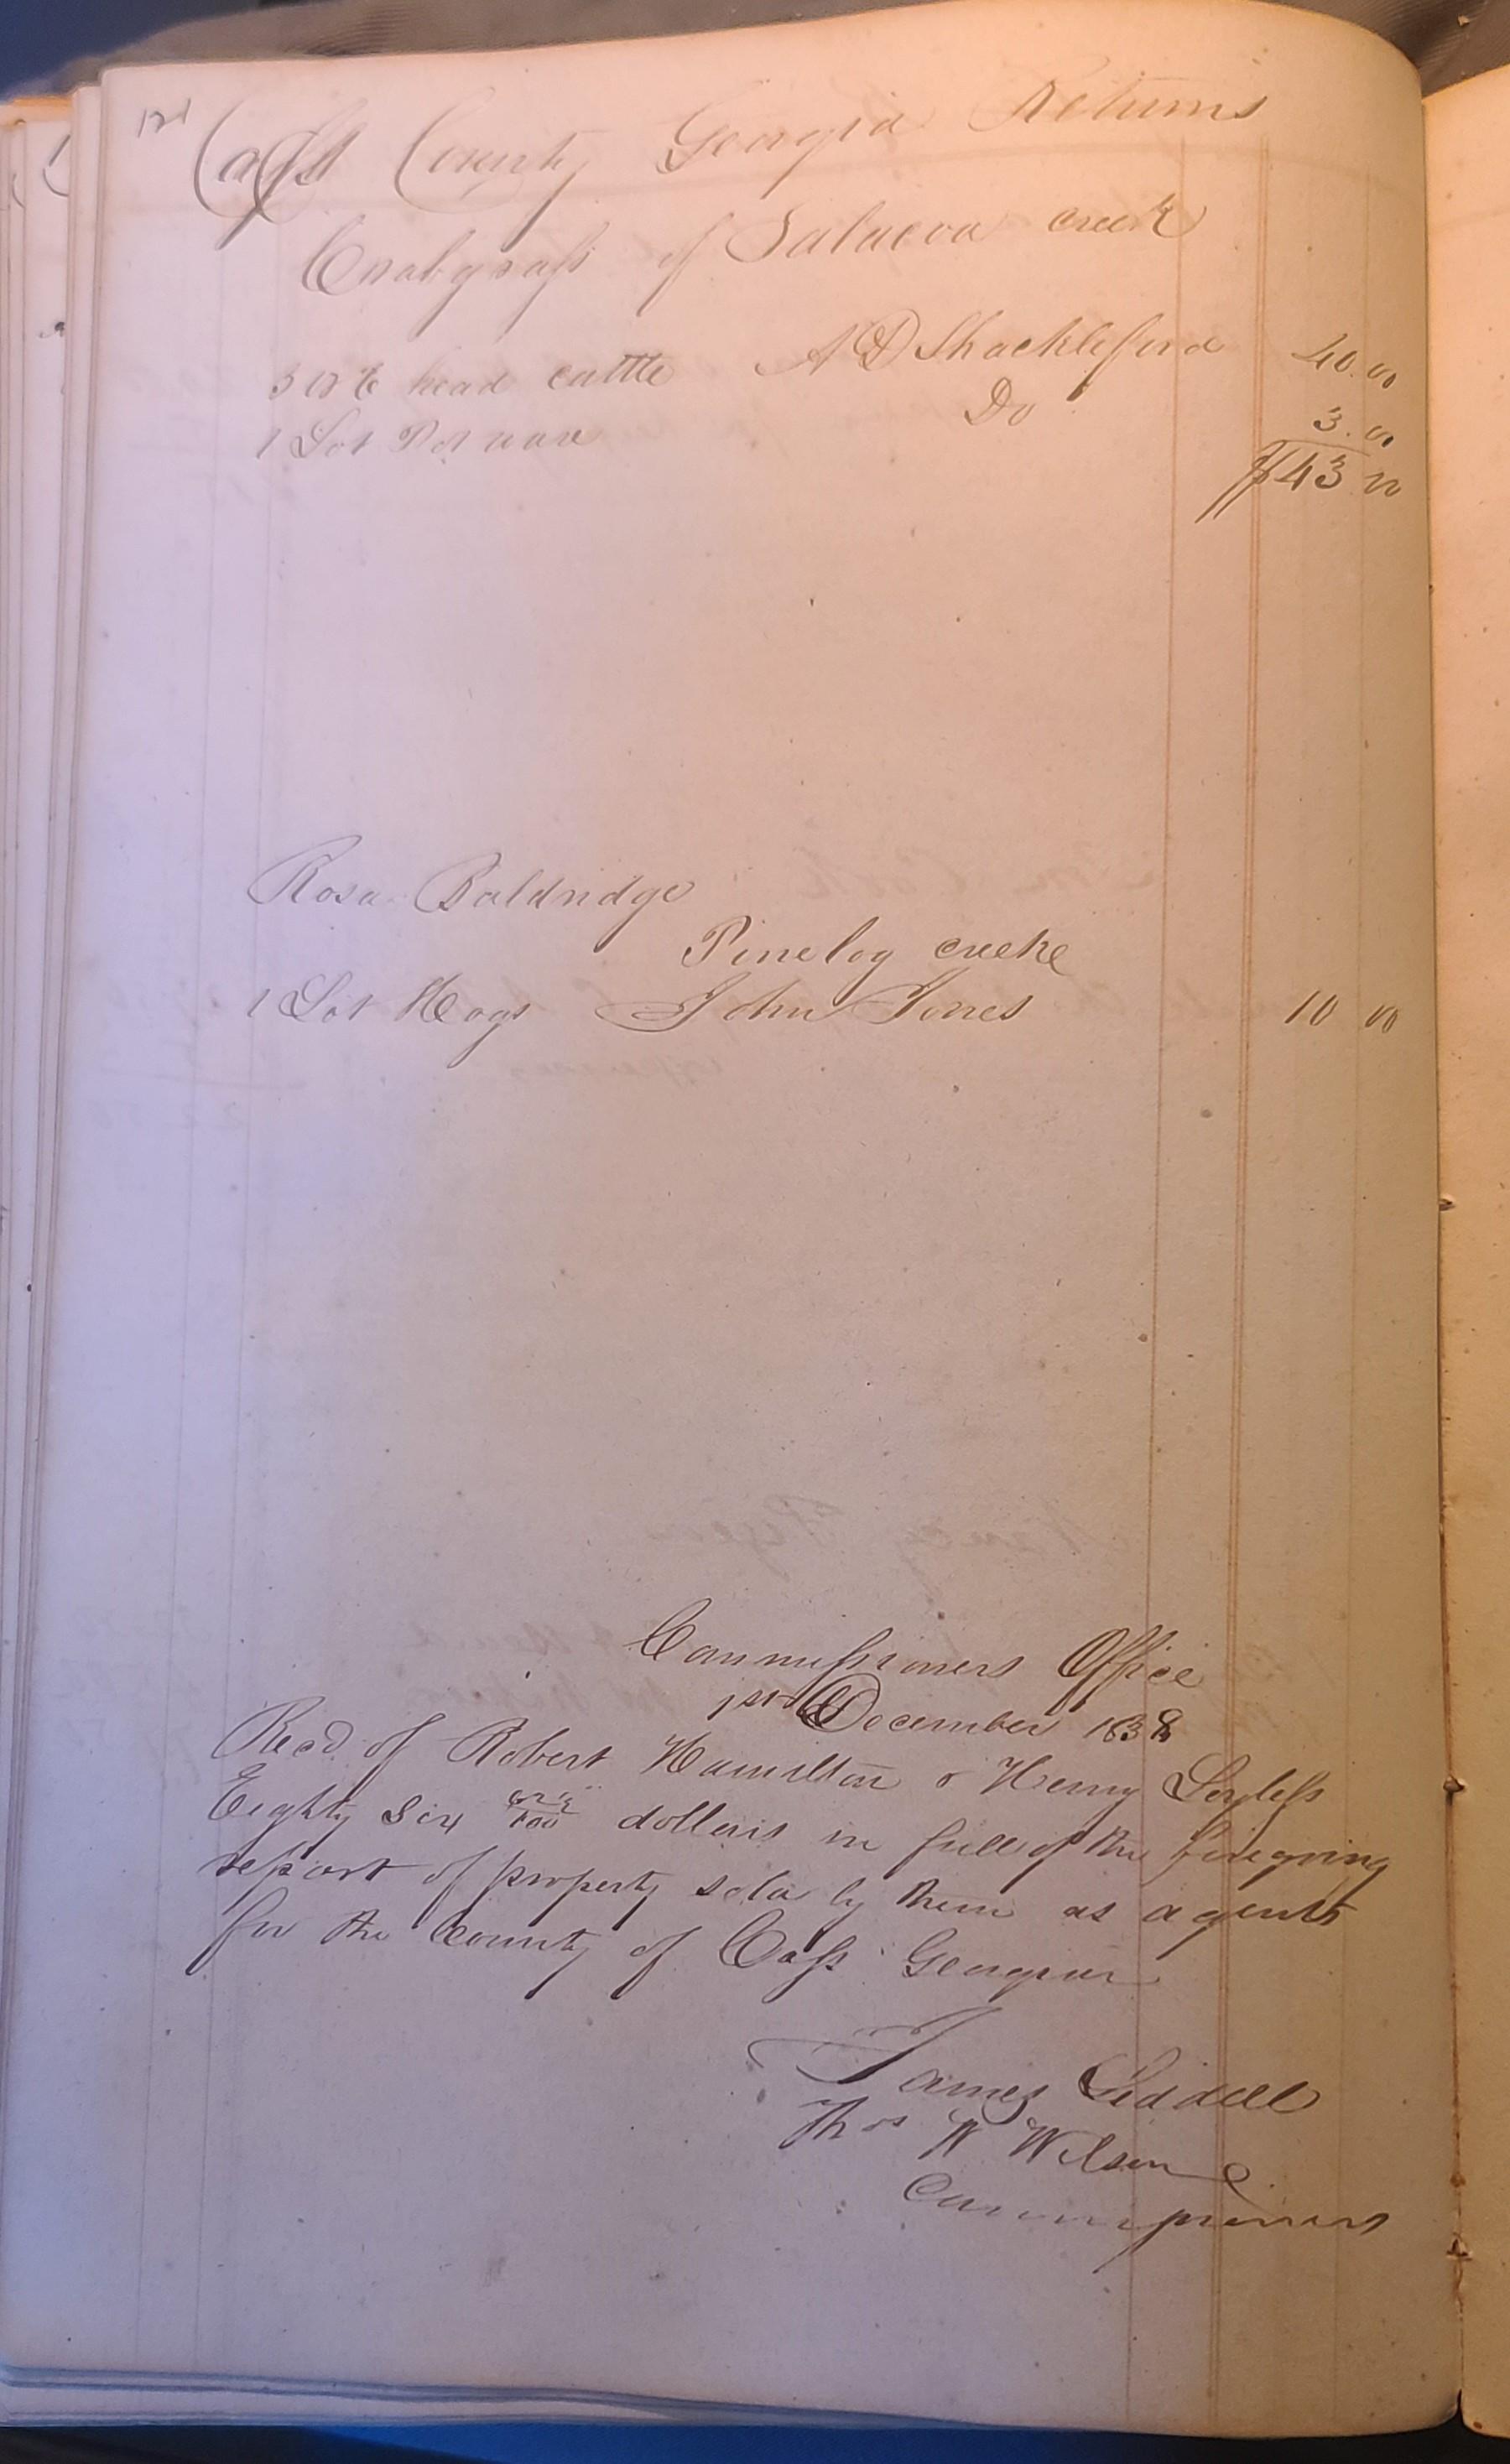 Cass County Georgia Returns
Crabgrass of Salacoa creek
5 or 6 head cattle A D Shackleford 40.00
1 Lot Pot ware Do 3.00
$43 00
Rosa Baldridge
Pinelog creeke
1 Lot Hogs John Jones 10 00
Commissioners Office
1st December 1838
Recd. of Robert Hamilton & Henry
Eighty Six dollars in full of the foregoing
report of property sold by them as agents
for the County of Cass Georgia
James Liddell
Thos W Wilson
Commissioners